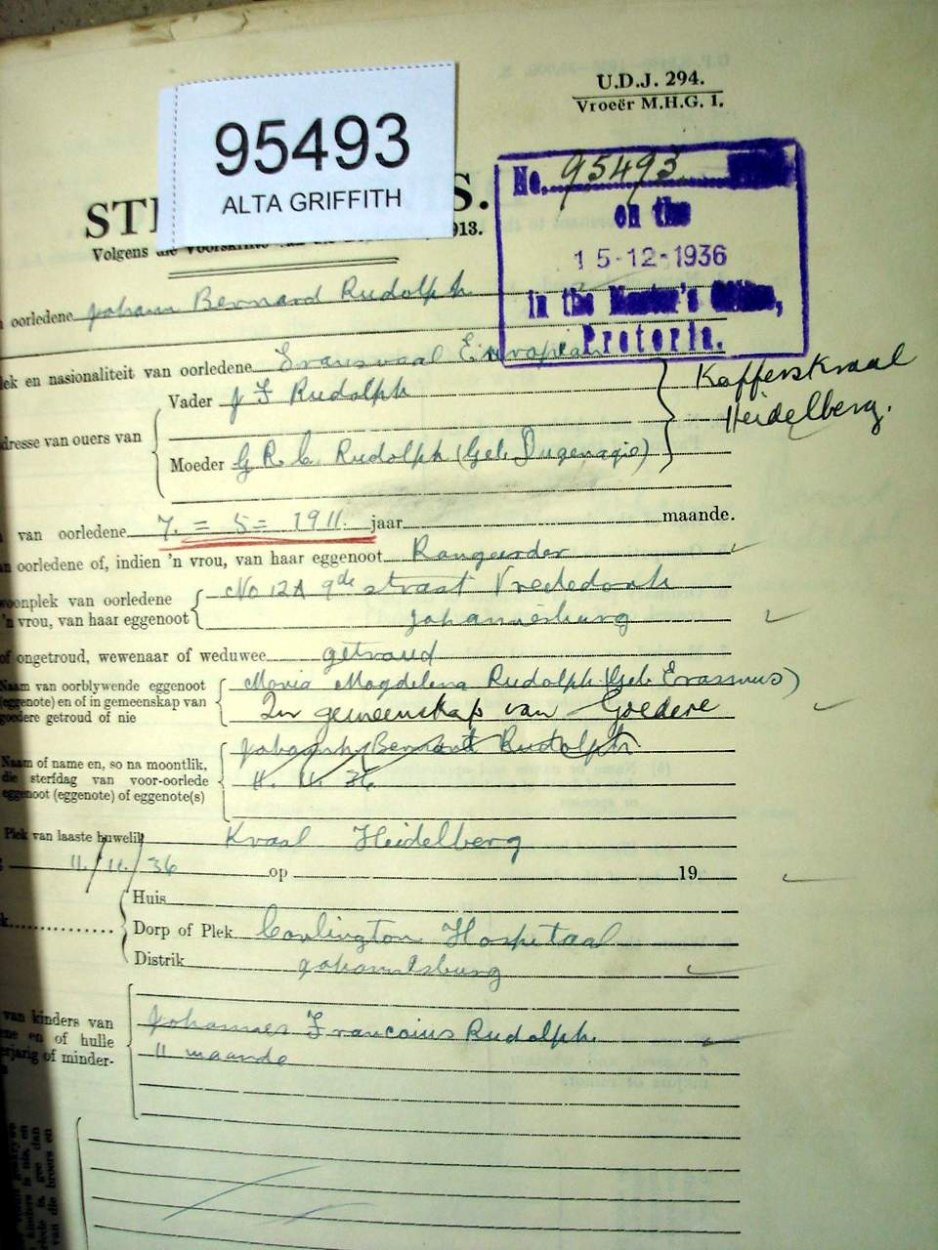 U.D.J. 294.
Vroeër M.H.G. 1.
95493
ALTA GRIFFITH
No. 95493
on the
15-12-1936
in the Master's Office,
Pretoria.
ST S.
Volgens die Voorskrifte van 1913.
oorledene Johann Bernard Rudolph
en nasionaliteit van oorledene Transvaal European
Vader J F Rudolph
Kafferskraal
Heidelberg.
van ouers van
Moeder G R C Rudolph (Geb Dugenagie)
van oorledene 7 = 5 = 1911 jaar maande.
oorledene of, indien 'n vrou, van haar eggenoot Rangeerder
woonplek van oorledene No 12A 9de straat Vrededorp
'n vrou, van haar eggenoot Johannesburg
of ongetroud, wewenaar of weduwee getroud
Naam van oorblywende eggenoot Maria Magdelena Rudolph (Geb Erasmus)
(eggenote) en of in gemeenskap van In gemeenskap van Goedere
goedere getroud of nie
Naam of name en, so na moontlik, Johann Bernard Rudolph
die sterfdag van voor-oorlede 11. 11. 36
eggenoot (eggenote) of eggenote(s)
Plek van laaste huwelik Kraal Heidelberg
11/11/36 op 19
Huis
Dorp of Plek Hospetaal
Distrik Johannesburg
van kinders van Johannes Francoius Rudolph.
en of hulle 11 maande
of minder-